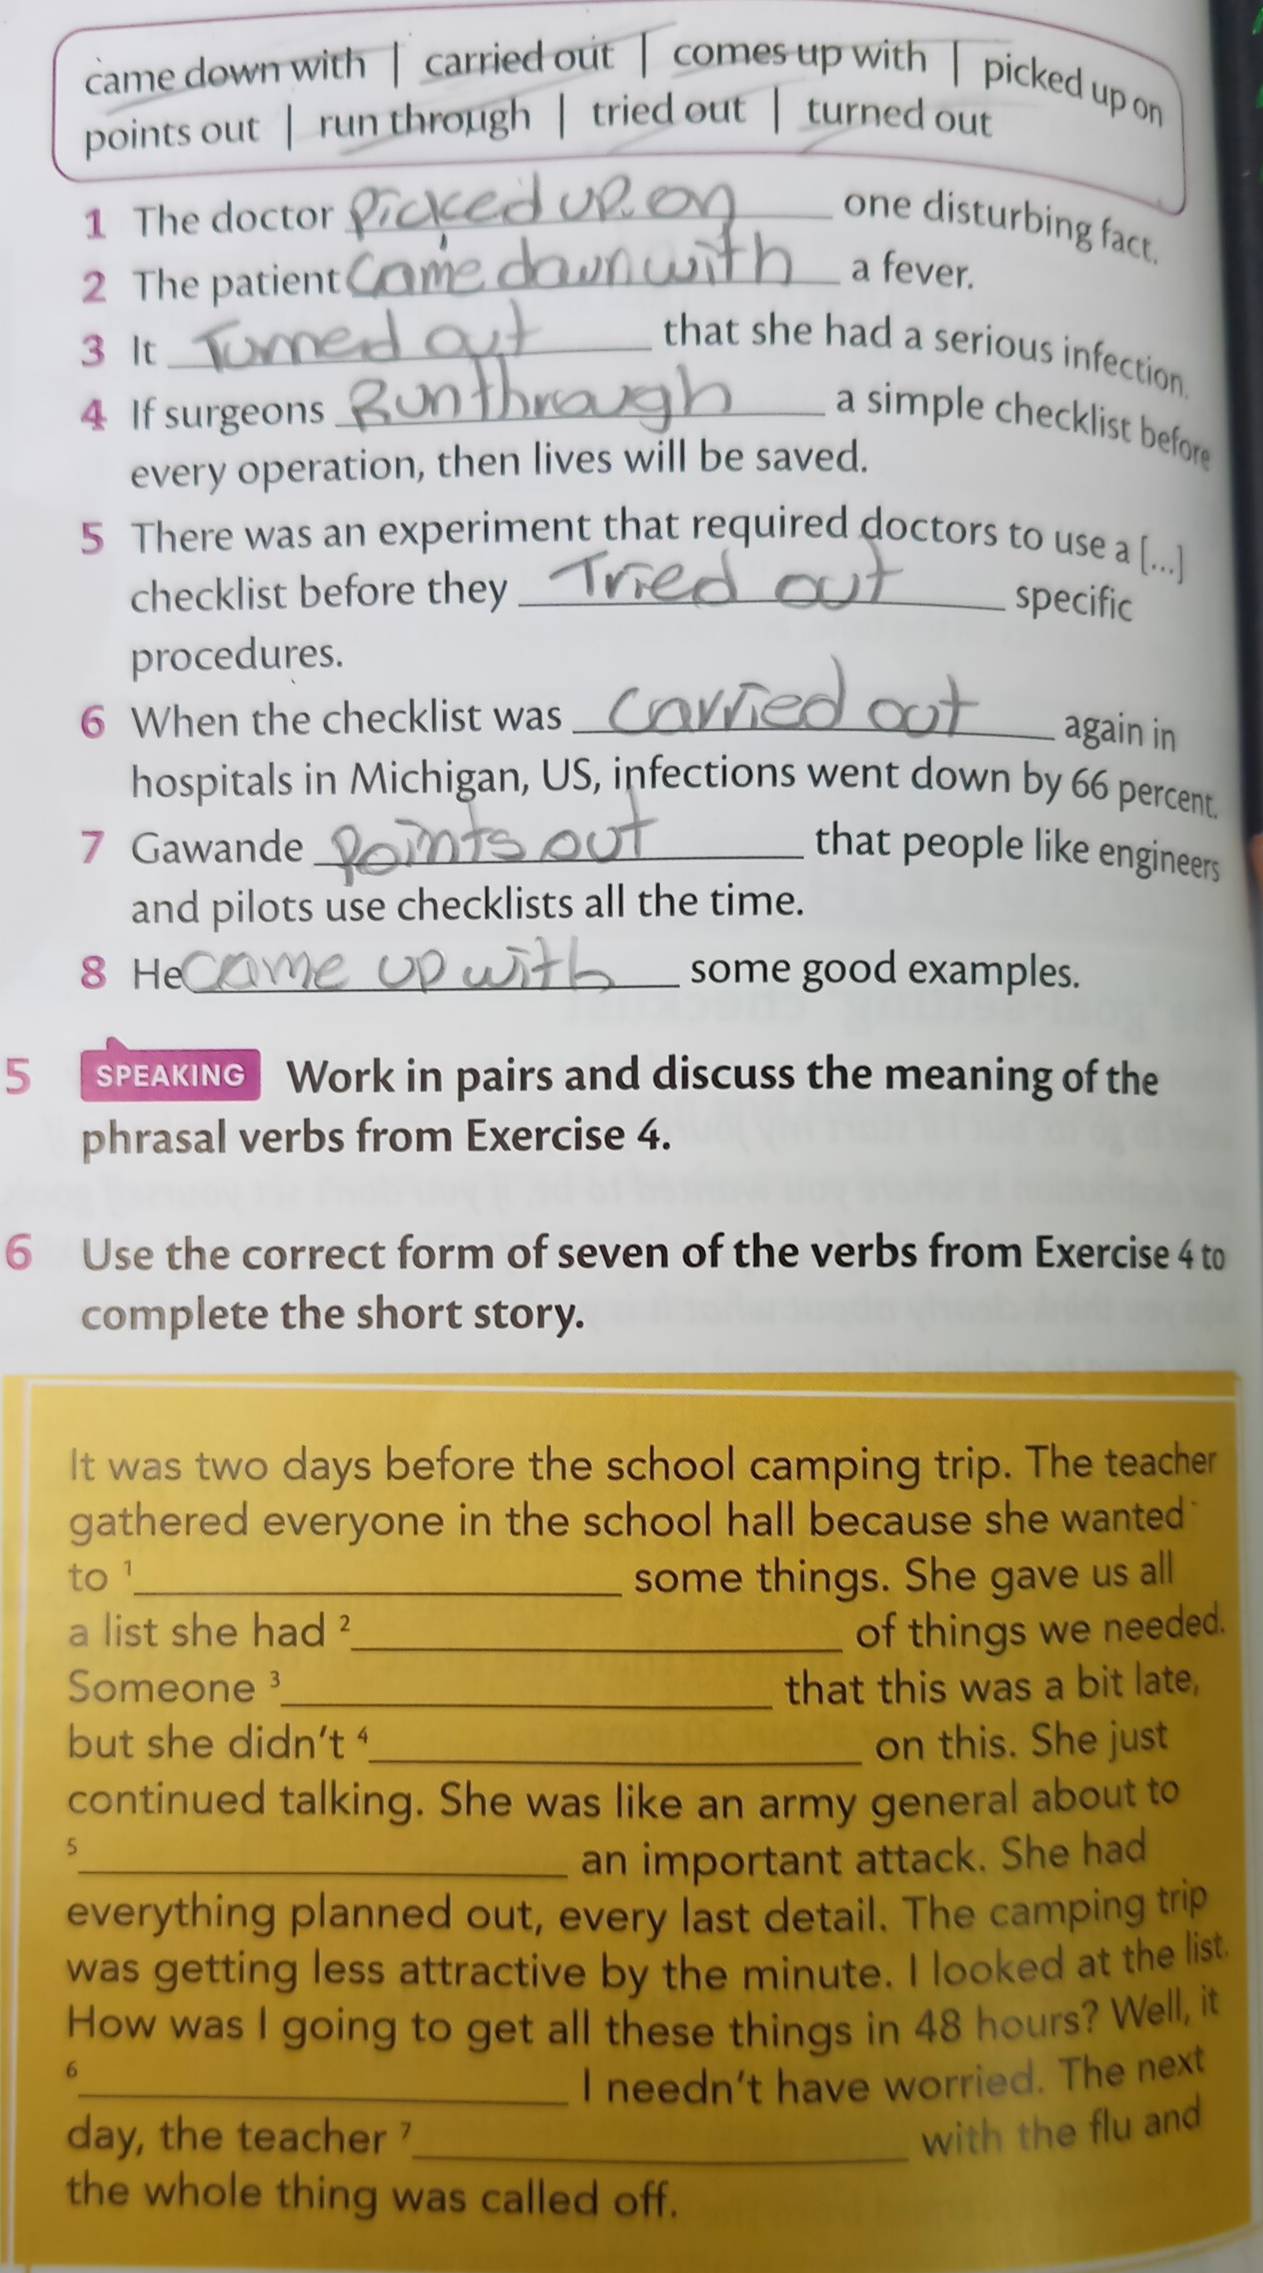 came down with | carried out | comes up with | picked up on
points out | run through | tried out | turned out
1 The doctor picked up on one disturbing fact.
2 The patient Came down with a fever.
3 It Turned out that she had a serious infection.
4 If surgeons Run through a simple checklist before
every operation, then lives will be saved.
5 There was an experiment that required doctors to use a [...]
checklist before they Tried out specific
procedures.
6 When the checklist was carried out again in
hospitals in Michigan, US, infections went down by 66 percent.
7 Gawande points out that people like engineers
and pilots use checklists all the time.
8 He came up with some good examples.
5 SPEAKING Work in pairs and discuss the meaning of the
phrasal verbs from Exercise 4.
6 Use the correct form of seven of the verbs from Exercise 4 to
complete the short story.
It was two days before the school camping trip. The teacher
gathered everyone in the school hall because she wanted
to 1 some things. She gave us all
a list she had 2 of things we needed.
Someone 3 that this was a bit late,
but she didn't 4 on this. She just
continued talking. She was like an army general about to
5 an important attack. She had
everything planned out, every last detail. The camping trip
was getting less attractive by the minute. I looked at the list.
How was I going to get all these things in 48 hours? Well, it
6 I needn't have worried. The next
day, the teacher 7 with the flu and
the whole thing was called off.